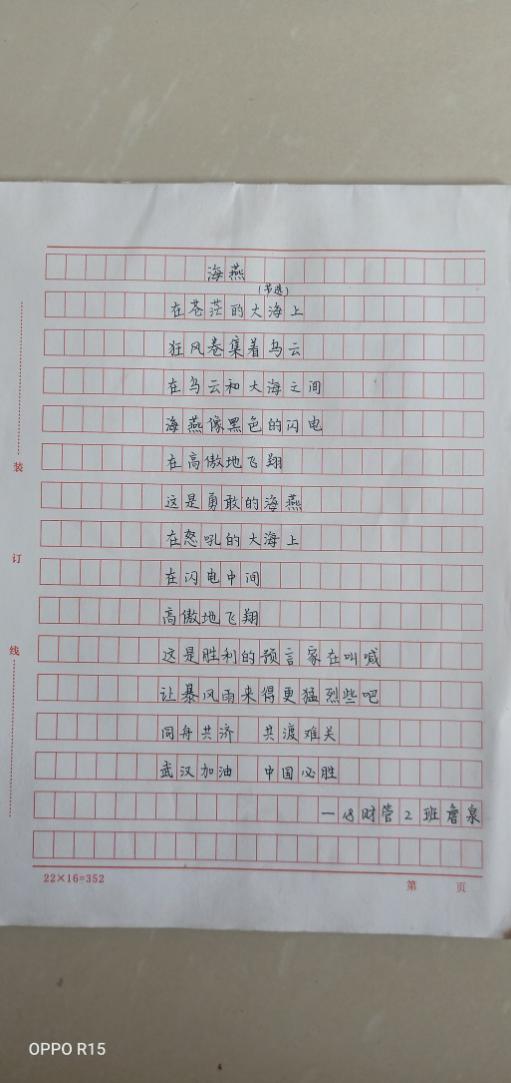 海燕
(节选)
在苍茫的大海上
狂风卷集着乌云
在乌云和大海之间
海燕像黑色的闪电
在高傲地飞翔
这是勇敢的海燕
在怒吼的大海上
在闪电中间
高傲地飞翔
这是胜利的预言家在叫喊
让暴风雨来得更猛烈些吧
同舟共济 共渡难关
武汉加油 中国必胜
一18财管2班詹泉
装
订
线
22×16=352
第 页
OPPO R15